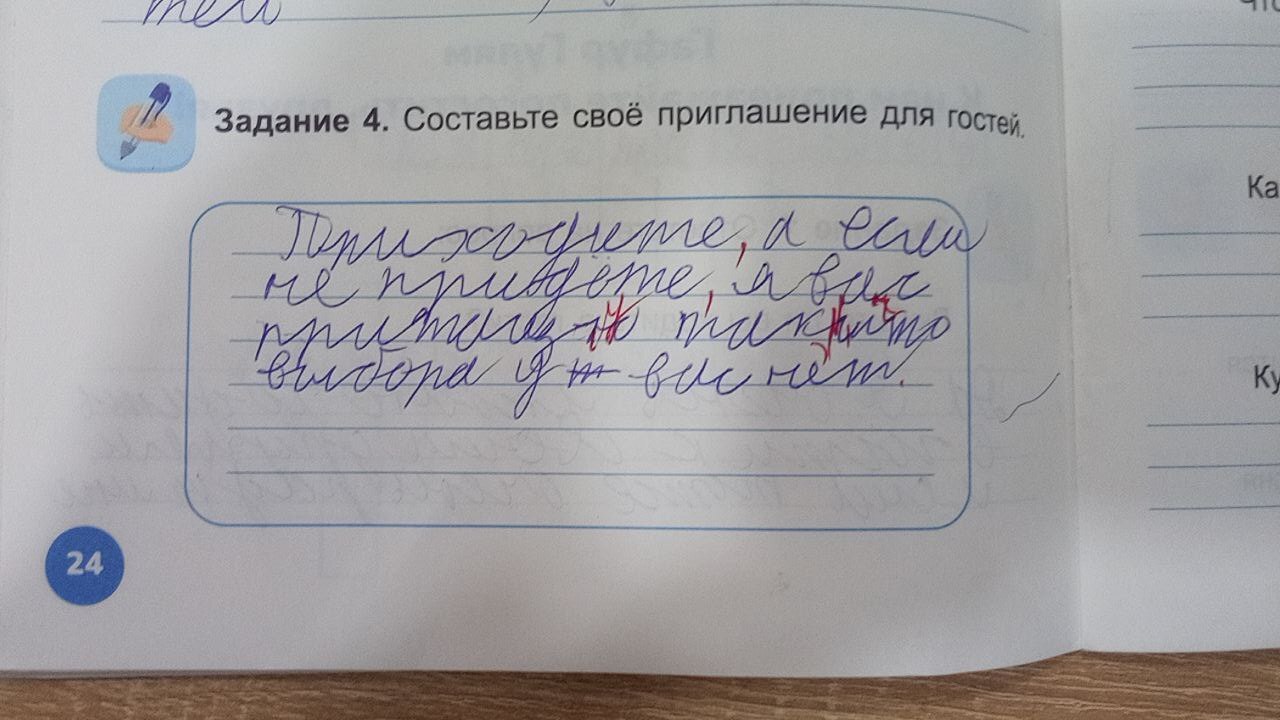 тей
Задание 4. Составьте своё приглашение для гостей.
Приходите, а если
не придёте, я вас
притащу так что
выбора у вас нет.
24
Ка
Ку